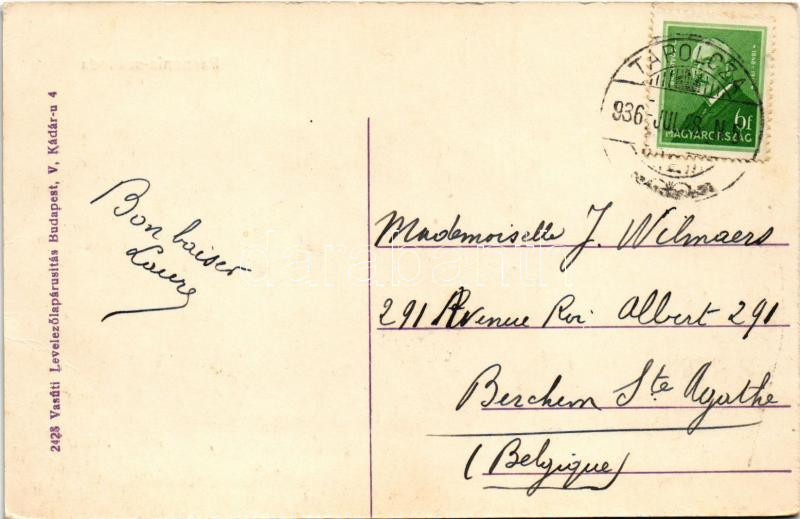 2428 Vasúti Levelezőlapárusítás Budapest, V, Kádár-u 4
Bon baiser
Laure
TAPOLCZA
936 JUL
6f
MAGYARORSZÁG
Mademoiselle J. Wilmaers
291 Avenue Roi Albert 291
Berchem Ste Agathe
(Belgique)